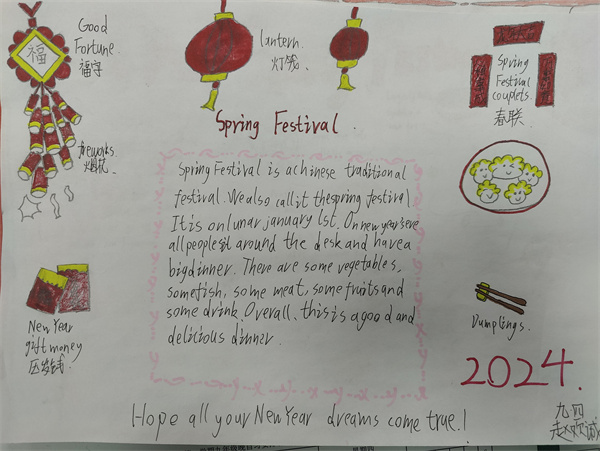 Good
Fortune.
福字
福
lantern.
灯笼
Spring
Festival
couplets.
春联
fireworks.
烟花
Spring Festival.
Spring Festival is a chinese traditional
festival. We also call it the spring festival
It is on lunar january 1st. On new year's eve
all people sit around the desk and have a
big dinner. There are some vegetables,
some fish, some meat, some fruits and
some drink. Overall, this is a good and
delicious dinner.
New Year
gift money
压岁钱.
Dumplings.
2024.
Hope all your New Year dreams come true.!
九四